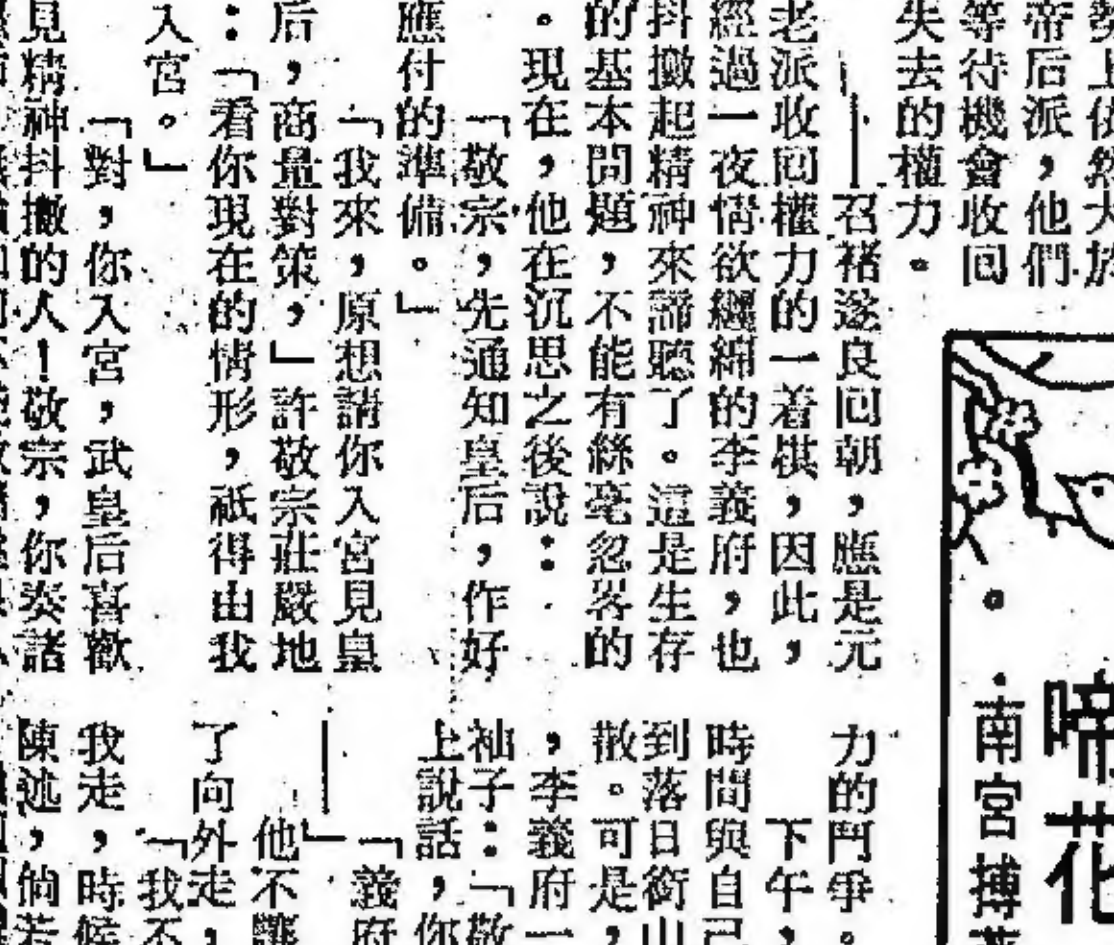 帝后派，他們
等待機會收回
失去的權力。
——召褚遂良回朝，應是元
老派收回權力的一着棋，因此，
經過一夜情欲纏綿的李義府，也
抖擻起精神來諦聽了。這是生存
的基本問題，不能有絲毫忽畧的
。現在，他在沉思之後說：
「敬宗，先通知皇后，作好
應付的準備。」
「我來，原想請你入宮見皇
后，商量對策，」許敬宗莊嚴地
：「看你現在的情形，祇得由我
入宮。」
「對，你入宮，武皇后喜歡
見精神抖擻的人！敬宗，你奏諸
力的鬥爭。
下午，
時間與自己
到落日銜山
散。可是，
，李義府一
袖子：「敬
上說話，你
「義府
——」
他不讓
了向外走，
「我不
我走，時候
陳述，倘若
啼花
南宮搏